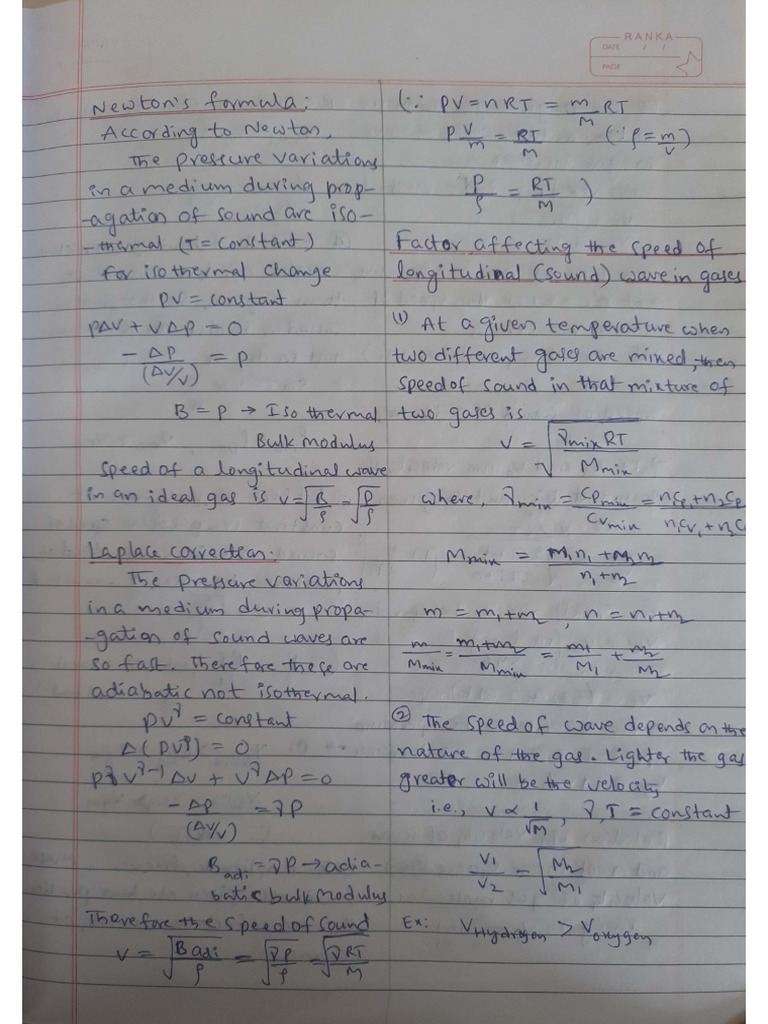 RANKA
DATE / /
PAGE
Newton's formula:
According to Newton,
The pressure variations
in a medium during prop-
-agation of sound are iso-
-thermal (T = constant)
for isothermal change
PV = constant
PΔV + VΔP = 0
-ΔP/(ΔV/V) = P
B = P → Iso thermal
Bulk modulus
Speed of a longitudinal wave
in an ideal gas is v = √(B/ρ) = √(P/ρ)
Laplace correction:
The pressure variations
in a medium during propa-
-gation of sound waves are
so fast. Therefore these are
adiabatic not isothermal.
PV^γ = constant
Δ(PV^γ) = 0
PγV^(γ-1) ΔV + V^γ ΔP = 0
-ΔP/(ΔV/V) = γP
B_adi = γP → adia-
batic bulk modulus
Therefore the speed of sound
v = √(B adi/ρ) = √(γP/ρ) = √(γRT/M)
(∵ PV = nRT = m/M RT
P V/m = RT/M (∵ ρ = m/v)
P/ρ = RT/M )
Factor affecting the speed of
longitudinal (sound) wave in gases
(1) At a given temperature when
two different gases are mixed, then
speed of sound in that mixture of
two gases is
v = √(γmix RT/M mix)
where, γmix = Cp mix/Cv mix = (n1Cp1 + n2Cp)/(n1Cv1 + n2C
M mix = (M1n1 + M2n2)/(n1 + n2)
m = m1 + m2, n = n1 + n2
m/M mix = (m1 + m2)/M mix = m1/M1 + m2/M2
② The speed of wave depends on the
nature of the gas. Lighter the gas
greater will be the velocity
i.e., v ∝ 1/√M, γ, T = constant
V1/V2 = √(M2/M1)
Ex: V Hydrogen > V oxygen